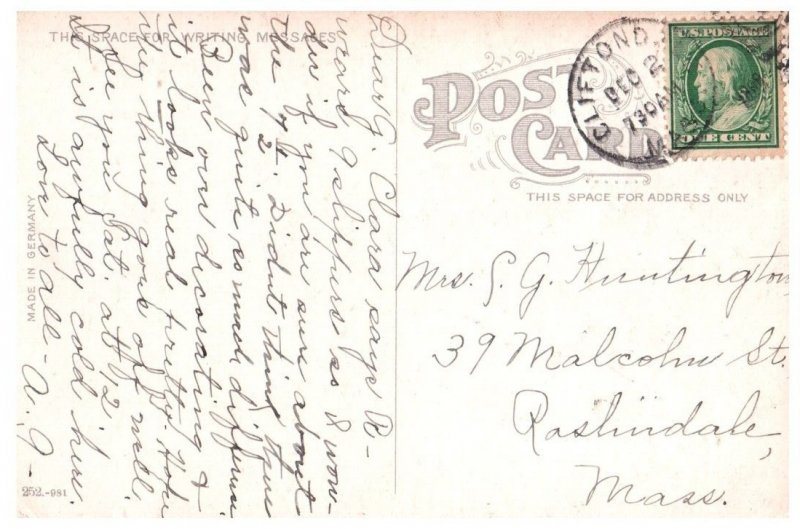 THIS SPACE FOR WRITING MESSAGES
Dear G. Clara says R-
ward 9 slippers is & won-
der if you are sure about
the 4½. Didnt think there
was quite so much differen
Been over decorating &
it looks real pretty. Hope
ye thing goes off well.
See you Sat. at 12
It is awfully cold here.
Love to all - A. G -
MADE IN GERMANY
252.-981
POST CARD
THIS SPACE FOR ADDRESS ONLY
CLIFTOND
DEC 2
730AM
U.S. POSTAGE
ONE CENT
Mrs. S. G. Huntington
39 Malcolm St.
Roslindale,
Mass.